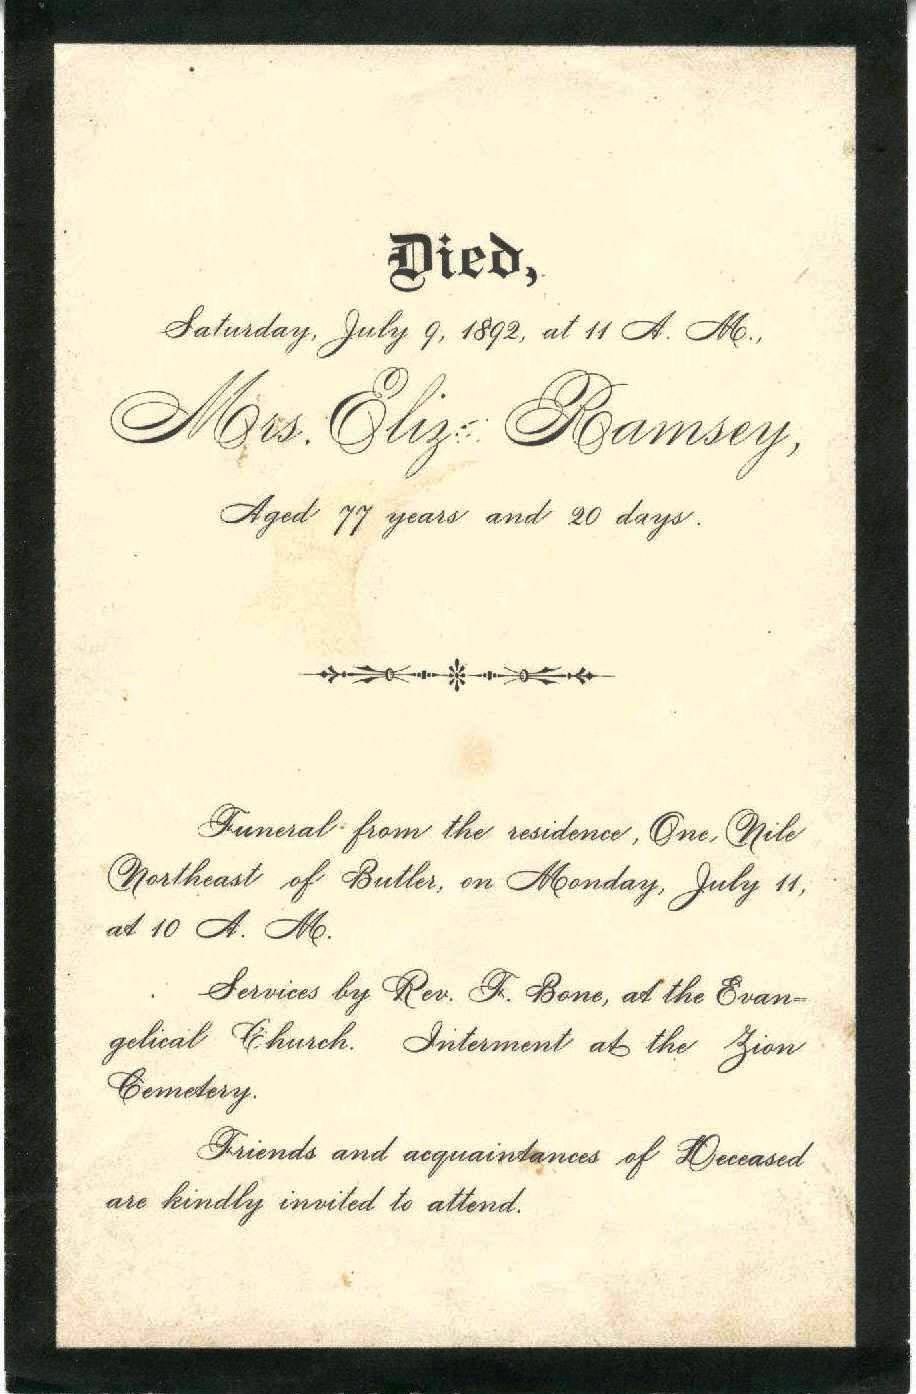 Died,
Saturday, July 9, 1892, at 11 A. M.,
Mrs. Eliz: Ramsey,
Aged 77 years and 20 days.
Funeral from the residence, One, Nile
Northeast of Butler, on Monday, July 11,
at 10 A. M.
Services by Rev. F. Bone, at the Evan=
gelical Church. Interment at the Zion
Cemetery.
Friends and acquaintances of Deceased
are kindly invited to attend.